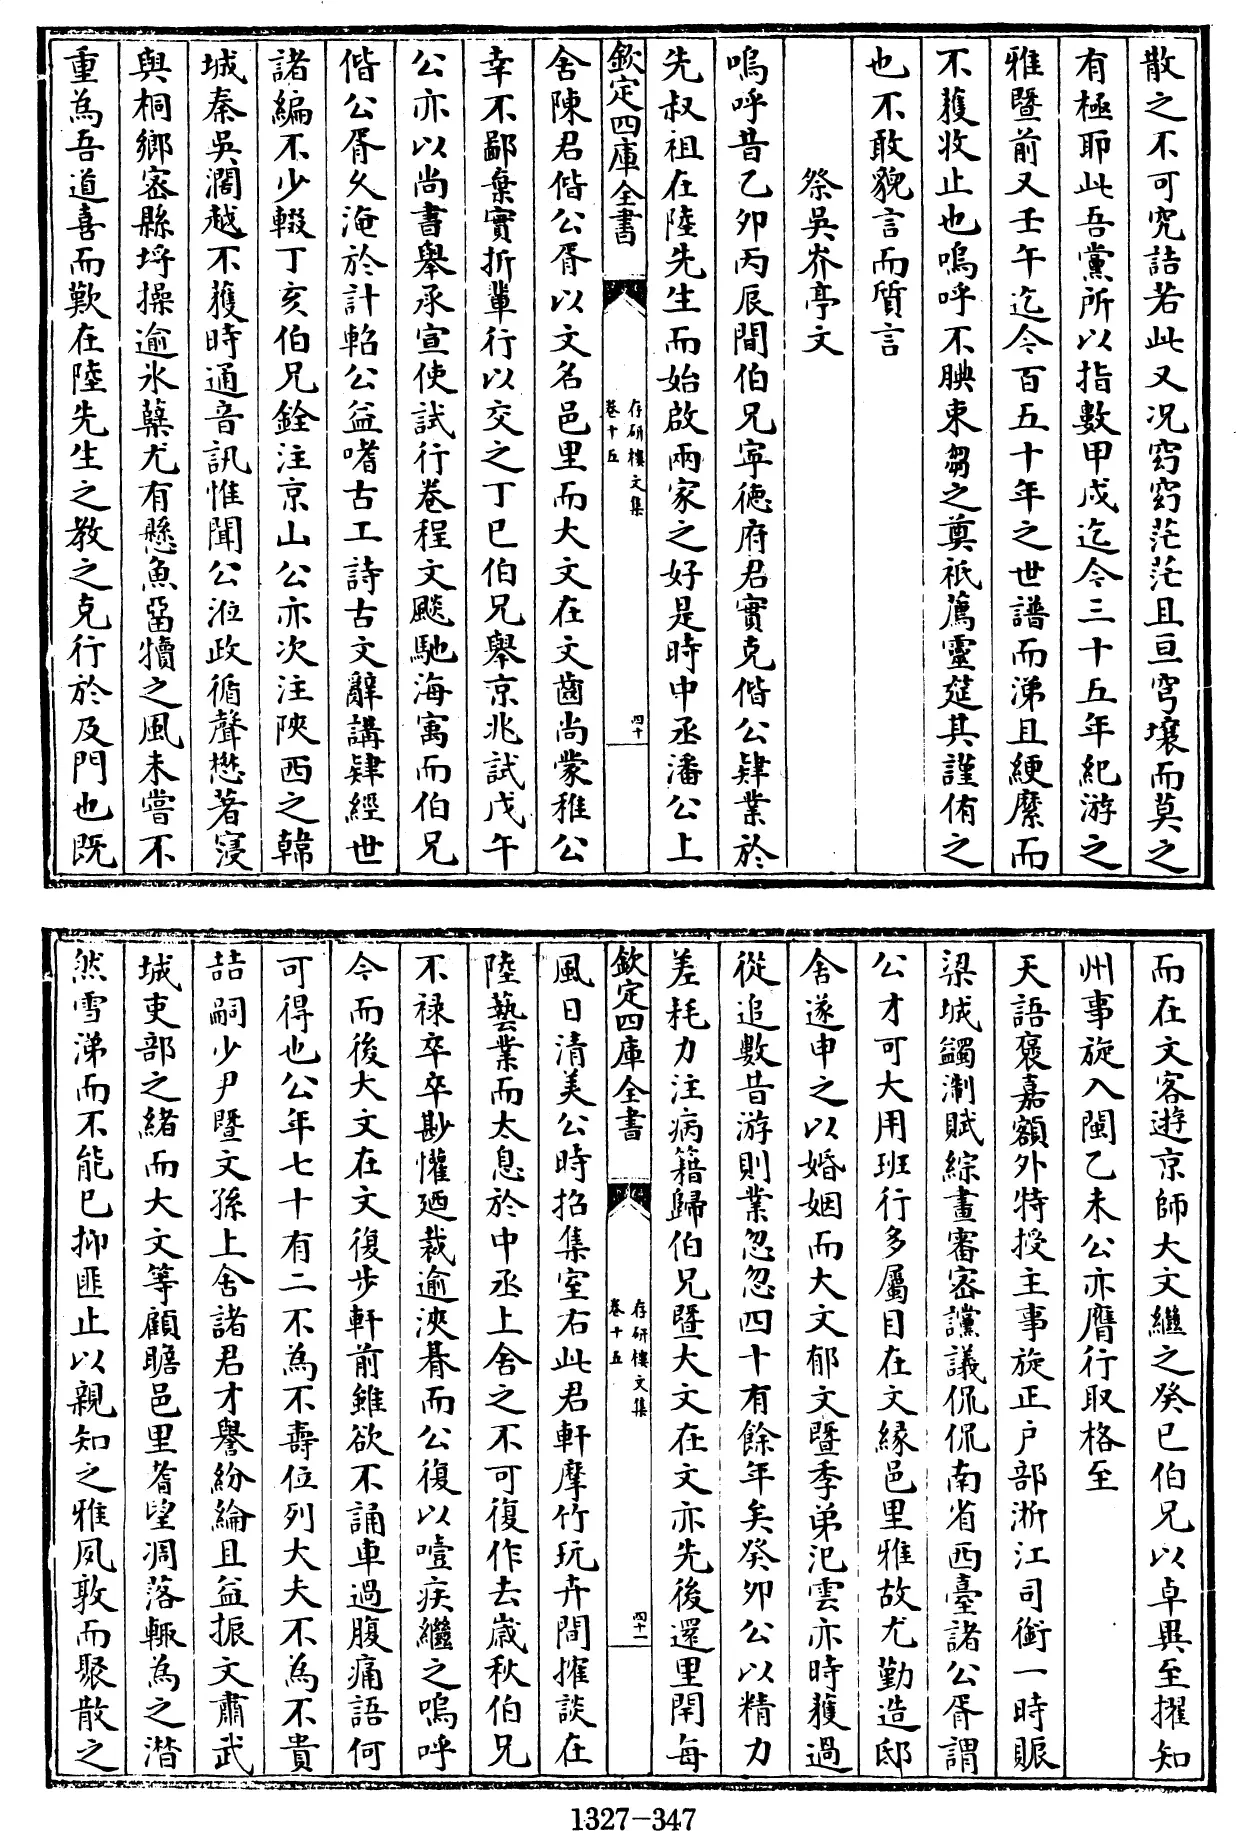 散之不可究詰若此又况窈窈茫茫且亘穹壤而莫之
有極耶此吾黨所以指數甲戌迄今三十五年紀游之
雅暨前又壬午迄今百五十年之世譜而涕且綆縻而
不獲收止也嗚呼不腆束芻之奠祇薦靈筵其謹侑之
也不敢貌言而質言
祭吳岕亭文
嗚呼昔乙卯丙辰間伯兄寧德府君實克偕公肄業於
先叔祖在陸先生而始啟兩家之好是時中丞潘公上
欽定四庫全書
存研樓文集
卷十五
四十
舍陳君偕公胥以文名邑里而大文在文齒尚蒙稚公
幸不鄙棄實折輩行以交之丁巳伯兄舉京兆試戊午
公亦以尚書舉承宣使試行卷程文颷馳海寓而伯兄
偕公胥久淹於計軺公益嗜古工詩古文辭講肄經世
諸編不少輟丁亥伯兄銓注京山公亦次注陝西之韓
城秦吳濶越不獲時通音訊惟聞公涖政循聲懋著寖
與桐鄉密縣埒操逾氷蘗尤有懸魚畱犢之風未嘗不
重為吾道喜而歎在陸先生之教之克行於及門也既
而在文客遊京師大文繼之癸巳伯兄以卓異至擢知
州事旋入閩乙未公亦膺行取格至
天語褒嘉額外特授主事旋正户部浙江司銜一時賑
梁城蠲淛賦綜畫審密讜議侃侃南省西臺諸公胥謂
公才可大用班行多屬目在文緣邑里雅故尤勤造邸
舍遂申之以婚姻而大文郁文暨季弟汜雲亦時獲過
從追數昔游則業忽忽四十有餘年矣癸卯公以精力
差耗力注病籍歸伯兄暨大文在文亦先後還里閈每
欽定四庫全書
存研樓文集
卷十五
四十一
風日清美公時招集室右此君軒摩竹玩卉間搉談在
陸藝業而太息於中丞上舍之不可復作去歲秋伯兄
不禄卒卒尠懽廼裁逾浹朞而公復以噎疾繼之嗚呼
今而後大文在文復步軒前雖欲不誦車過腹痛語何
可得也公年七十有二不為不壽位列大夫不為不貴
喆嗣少尹暨文孫上舍諸君才譽紛綸且益振文肅武
城吏部之緒而大文等顧瞻邑里耆望凋落輙為之潸
然雪涕而不能已抑匪止以親知之雅夙敦而聚散之
1327-347